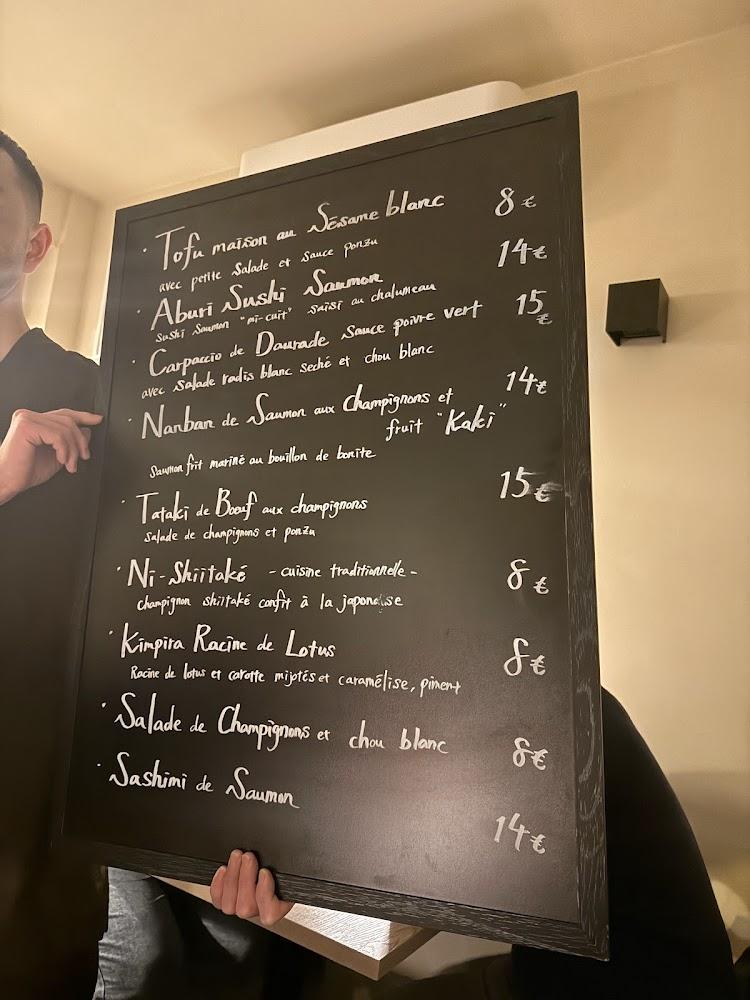 · Tofu maison au Sésame blanc 8€
avec petite Salade et Sauce ponzu
· Aburi Sushi Saumon 14€
Sushi Saumon "mi-cuit" saisi au chalumeau
· Carpaccio de Daurade Sauce poivre vert 15€
avec Salade radis blanc seché et chou blanc
· Nanban de Saumon aux champignons et 14€
fruit "Kaki"
Saumon frit mariné au bouillon de bonite
· Tataki de Bœuf aux champignons 15€
Salade de champignons et ponzu
· Ni-Shiitaké - cuisine traditionnelle - 8€
champignon shiitaké confit à la japonaise
· Kimpira Racine de Lotus 8€
Racine de lotus et carotte mijotés et caramélise, piment
· Salade de Champignons et chou blanc 8€
· Sashimi de Saumon 14€